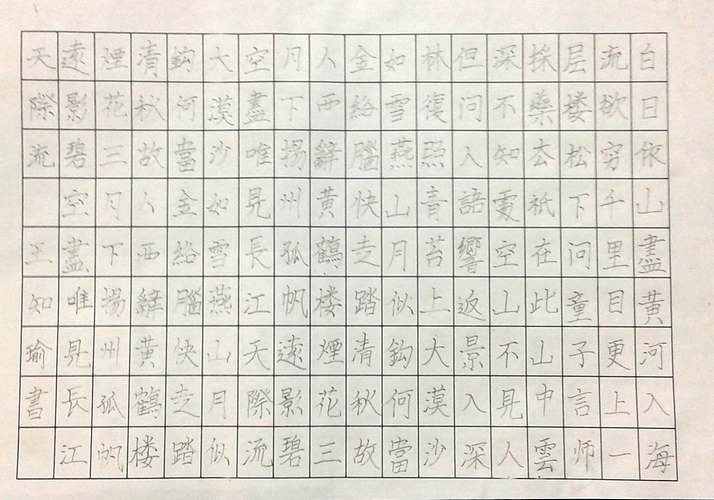 白日依山盡黄河入海
流欲穷千里目更上一
层楼松下问童子言师
採藥去祇在此山中雲
深不知處空山不見人
但问人語響返景入深
林復照青苔上大漠沙
如雪燕山月似鈎何當
金絡腦快走踏清秋故
人西辭黄鶴楼煙花三
月下揚州孤帆遠影碧
空盡唯見長江天際流
大漠沙如雪燕山月似
鈎何當金絡腦快走踏
清秋故人西辭黄鶴楼
煙花三月下揚州孤帆
遠影碧空盡唯見長江
天際流 王知瑜書